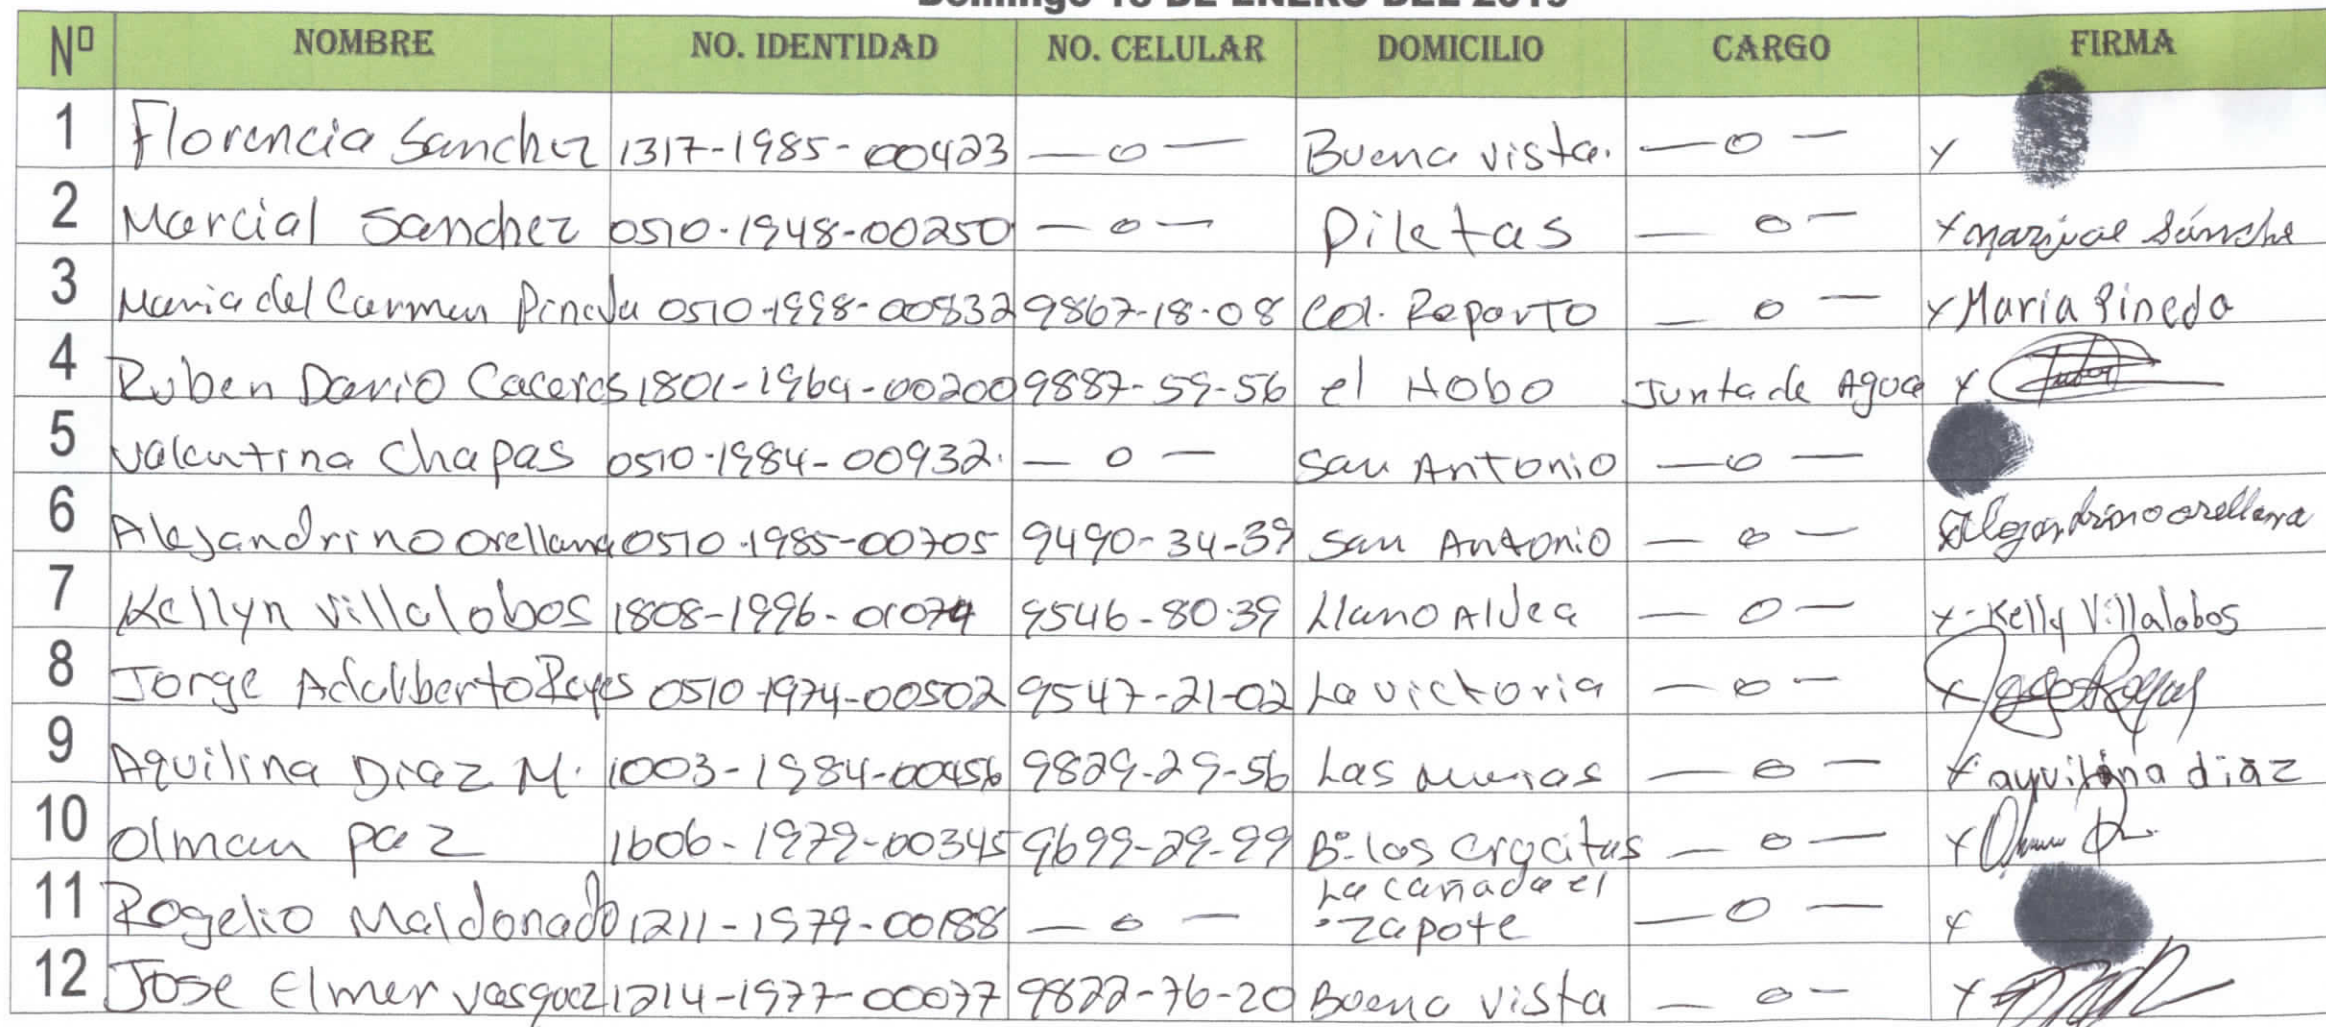 Domingo 18 DE ENERO DEL 2019
Nº NOMBRE NO. IDENTIDAD NO. CELULAR DOMICILIO CARGO FIRMA
1 Florencia Sanchez 1317-1985-00423 —o— Buena vista. —o— x
2 Marcial Sanchez 0510-1948-00250 —o— Piletas —o— x marsial Sánche
3 Maria del Carmen Pineda 0510-1998-00832 9867-18-08 Col. Reparto —o— x Maria Pineda
4 Ruben Dario Caceres 1801-1969-00200 9887-59-56 el Hobo Junta de Agua x
5 Valentina Chapas 0510-1984-00932. —o— San Antonio —o—
6 Alejandrino Orellana 0510-1985-00705 9490-34-39 San Antonio —o— Alejandrino orellana
7 Kellyn Villalobos 1808-1996-01074 9546-80-39 Llano Aldea —o— x-Kelly Villalobos
8 Jorge Adalberto Reyes 0510-1974-00502 9547-21-02 La victoria —o— x
9 Aquilina Diaz M. 1003-1984-00456 9829-29-56 Las —o— x aquilina diaz
10 Olman paz 1606-1979-00345 9699-29-99 Bº los —o— x
11 Rogelio Maldonado 1211-1979-00188 —o— La cañada el zapote —o— x
12 Jose Elmer vasquez 1214-1977-00077 9822-76-20 Buena vista —o— x